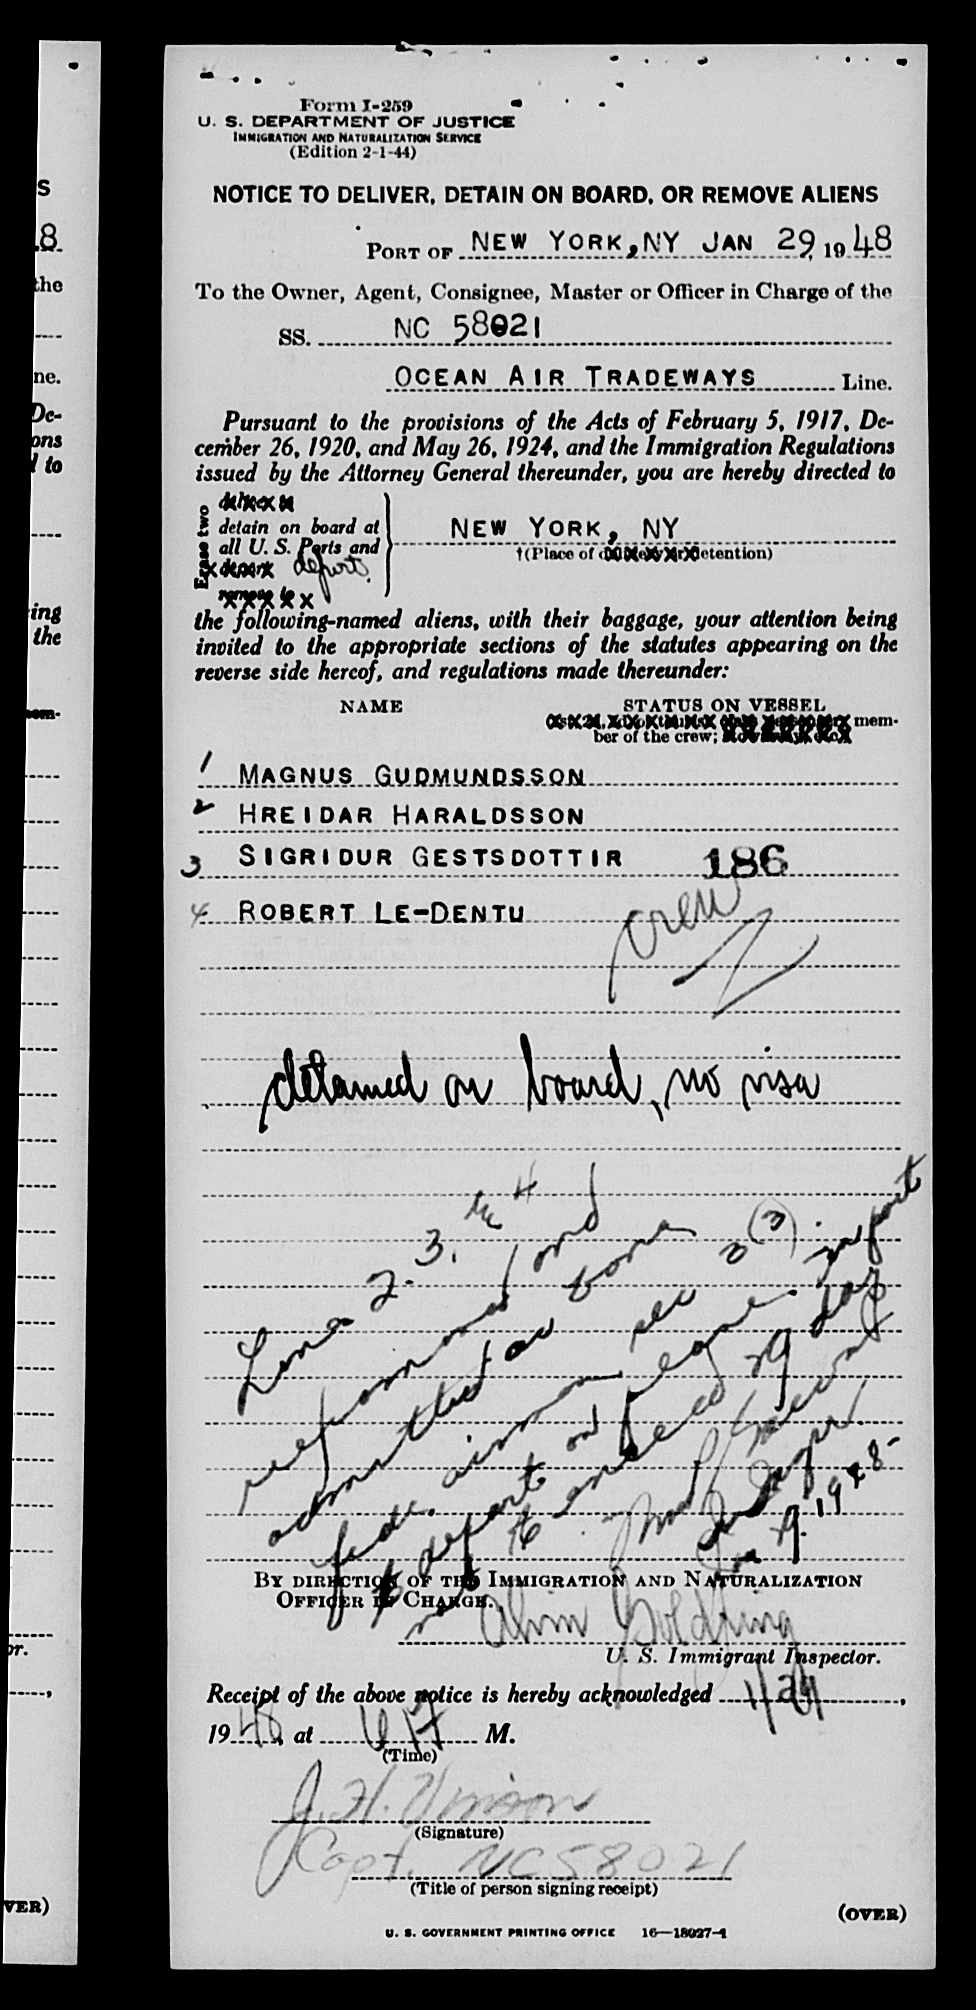 S
8
the
ne.
De-
ons
l to
ing
the
nem-
or.
VER)
Form I-259
U. S. DEPARTMENT OF JUSTICE
IMMIGRATION AND NATURALIZATION SERVICE
(Edition 2-1-44)
NOTICE TO DELIVER, DETAIN ON BOARD, OR REMOVE ALIENS
PORT OF NEW YORK, NY JAN 29, 1948
To the Owner, Agent, Consignee, Master or Officer in Charge of the
SS. NC 58021
OCEAN AIR TRADEWAYS Line.
Pursuant to the provisions of the Acts of February 5, 1917, De-
cember 26, 1920, and May 26, 1924, and the Immigration Regulations
issued by the Attorney General thereunder, you are hereby directed to
Erase two
deliver
detain on board at
all U. S. Ports and
depart depart
remove to
NEW YORK, NY
†(Place of delivery or detention)
the following-named aliens, with their baggage, your attention being
invited to the appropriate sections of the statutes appearing on the
reverse side hereof, and regulations made thereunder:
NAME STATUS ON VESSEL
mem-
ber of the crew;
1 MAGNUS GUDMUNDSSON
2 HREIDAR HARALDSSON
3 SIGRIDUR GESTSDOTTIR 186
4 ROBERT LE-DENTU
crew
detained on board, no visa
Lines 2. 3. & 4
reexamined and
admitted as bona
fide airmen sec 3 (3).
to depart on plane. in port
not to exceed 29 days
Jan 29 1948
BY DIRECTION OF THE IMMIGRATION AND NATURALIZATION
OFFICER IN CHARGE.
Goldring
U. S. Immigrant Inspector.
Receipt of the above notice is hereby acknowledged 1/29,
1948, at 6 17 M.
(Time)
J. H. Vinson
(Signature)
Capt. NC58021
(Title of person signing receipt)
(OVER)
U. S. GOVERNMENT PRINTING OFFICE 16—18027-1